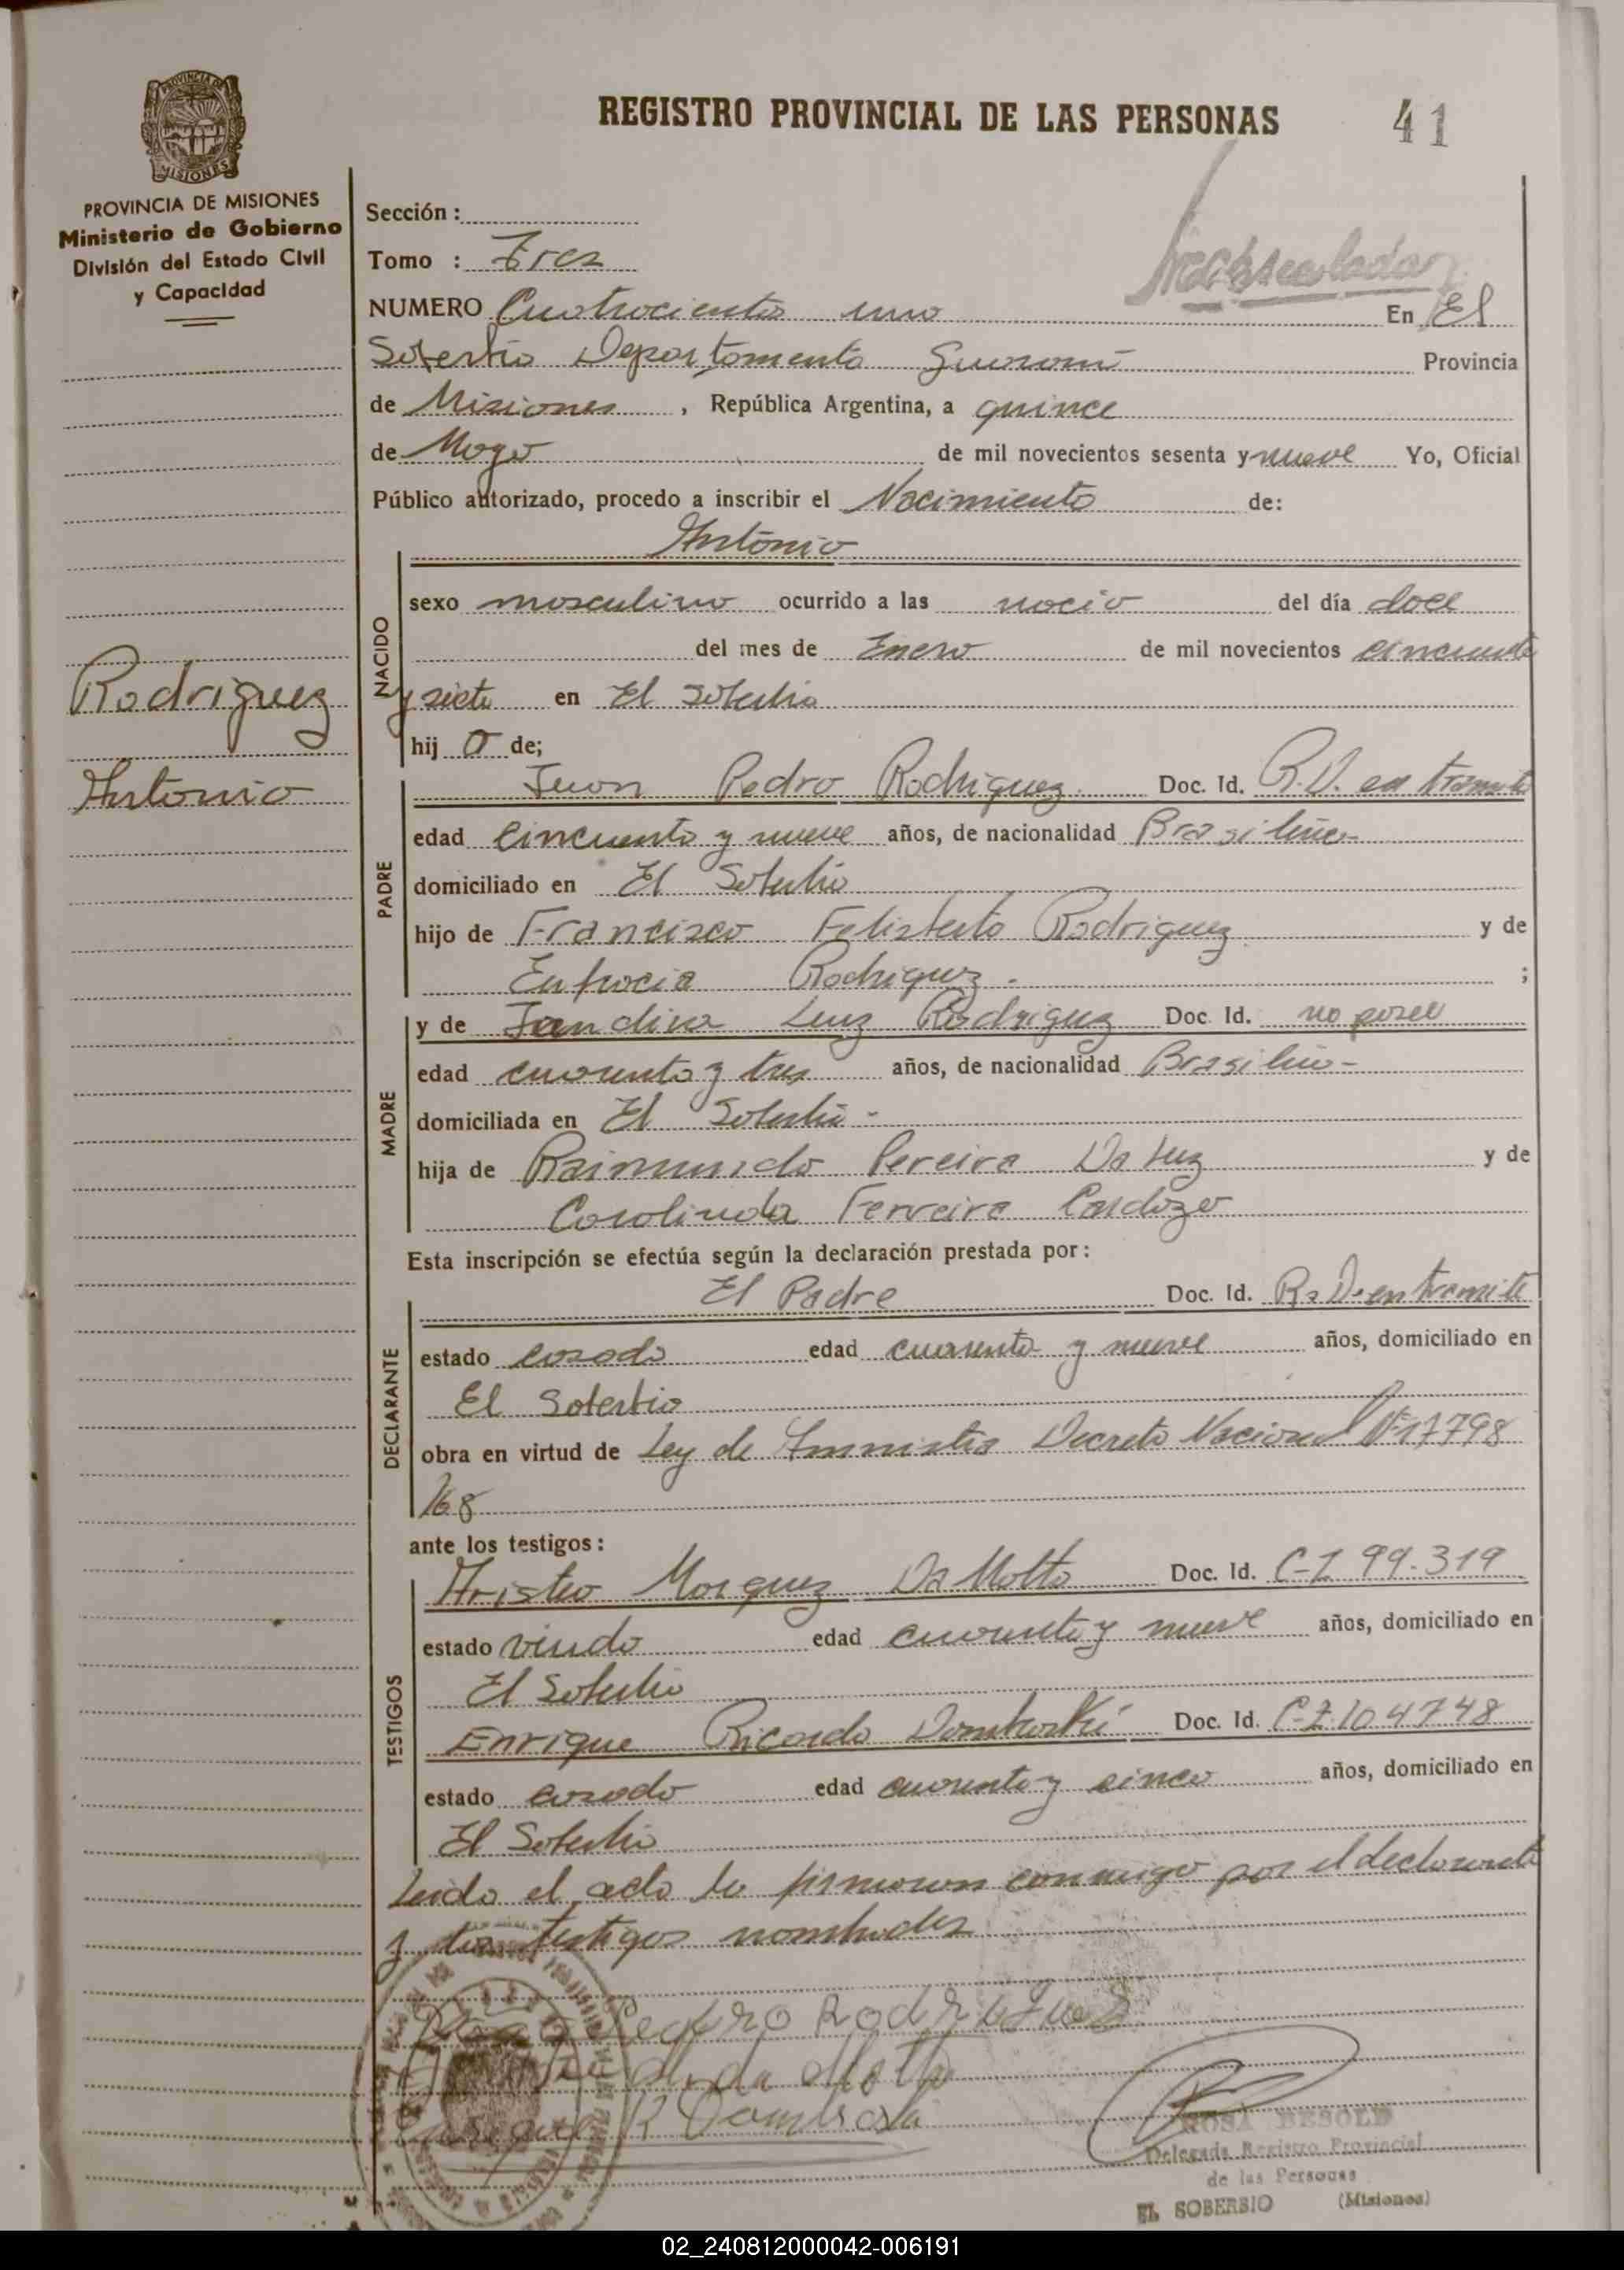 PROVINCIA DE MISIONES
REGISTRO PROVINCIAL DE LAS PERSONAS 41
PROVINCIA DE MISIONES
Ministerio de Gobierno
División del Estado Civil
y Capacidad
Sección :
Tomo : Tres
NUMERO Cuatrocientos uno En El
Soberbio Departamento Guaraní Provincia
de Misiones , República Argentina, a quince
de Mayo de mil novecientos sesenta y nueve Yo, Oficial
Público autorizado, procedo a inscribir el Nacimiento de:
Antonio
NACIDO
sexo masculino ocurrido a las nació del día doce
del mes de Enero de mil novecientos cincuenta
y siete en El Soberbio
hij o de;
Rodriguez
Antonio
PADRE
Juan Pedro Rodriguez Doc. Id. R.D. en tramite
edad cincuenta y nueve años, de nacionalidad Brasileña
domiciliado en El Soberbio
hijo de Francisco Felisberto Rodriguez y de
Eufrocia Rodriguez ;
MADRE
y de Jandira Luz Rodriguez Doc. Id. no posee
edad cuarenta y tres años, de nacionalidad Brasileña
domiciliada en El Soberbio
hija de Raimundo Pereira Da Luz y de
Carolinda Ferreira Cardozo
Esta inscripción se efectúa según la declaración prestada por:
DECLARANTE
El Padre Doc. Id. R. D. en tramite
estado casado edad cuarenta y nueve años, domiciliado en
El Soberbio
obra en virtud de Ley de Amnistia Decreto Nacional Nº 17798
/68
ante los testigos:
TESTIGOS
Aristeo Marquez Da Motta Doc. Id. C-I 99.319
estado viudo edad cuarenta y nueve años, domiciliado en
El Soberbio
Enrique Ricardo Domboski Doc. Id. C-I 104748
estado casado edad cuarenta y cinco años, domiciliado en
El Soberbio
Leido el acta la firmaron conmigo por el declarante
y los testigos nombrados
Pedro Rodrigues
da Motta
R Domboski
ROSA BESOLD
Delegada Registro Provincial
de las Personas
EL SOBERBIO (Misiones)
02_240812000042-006191